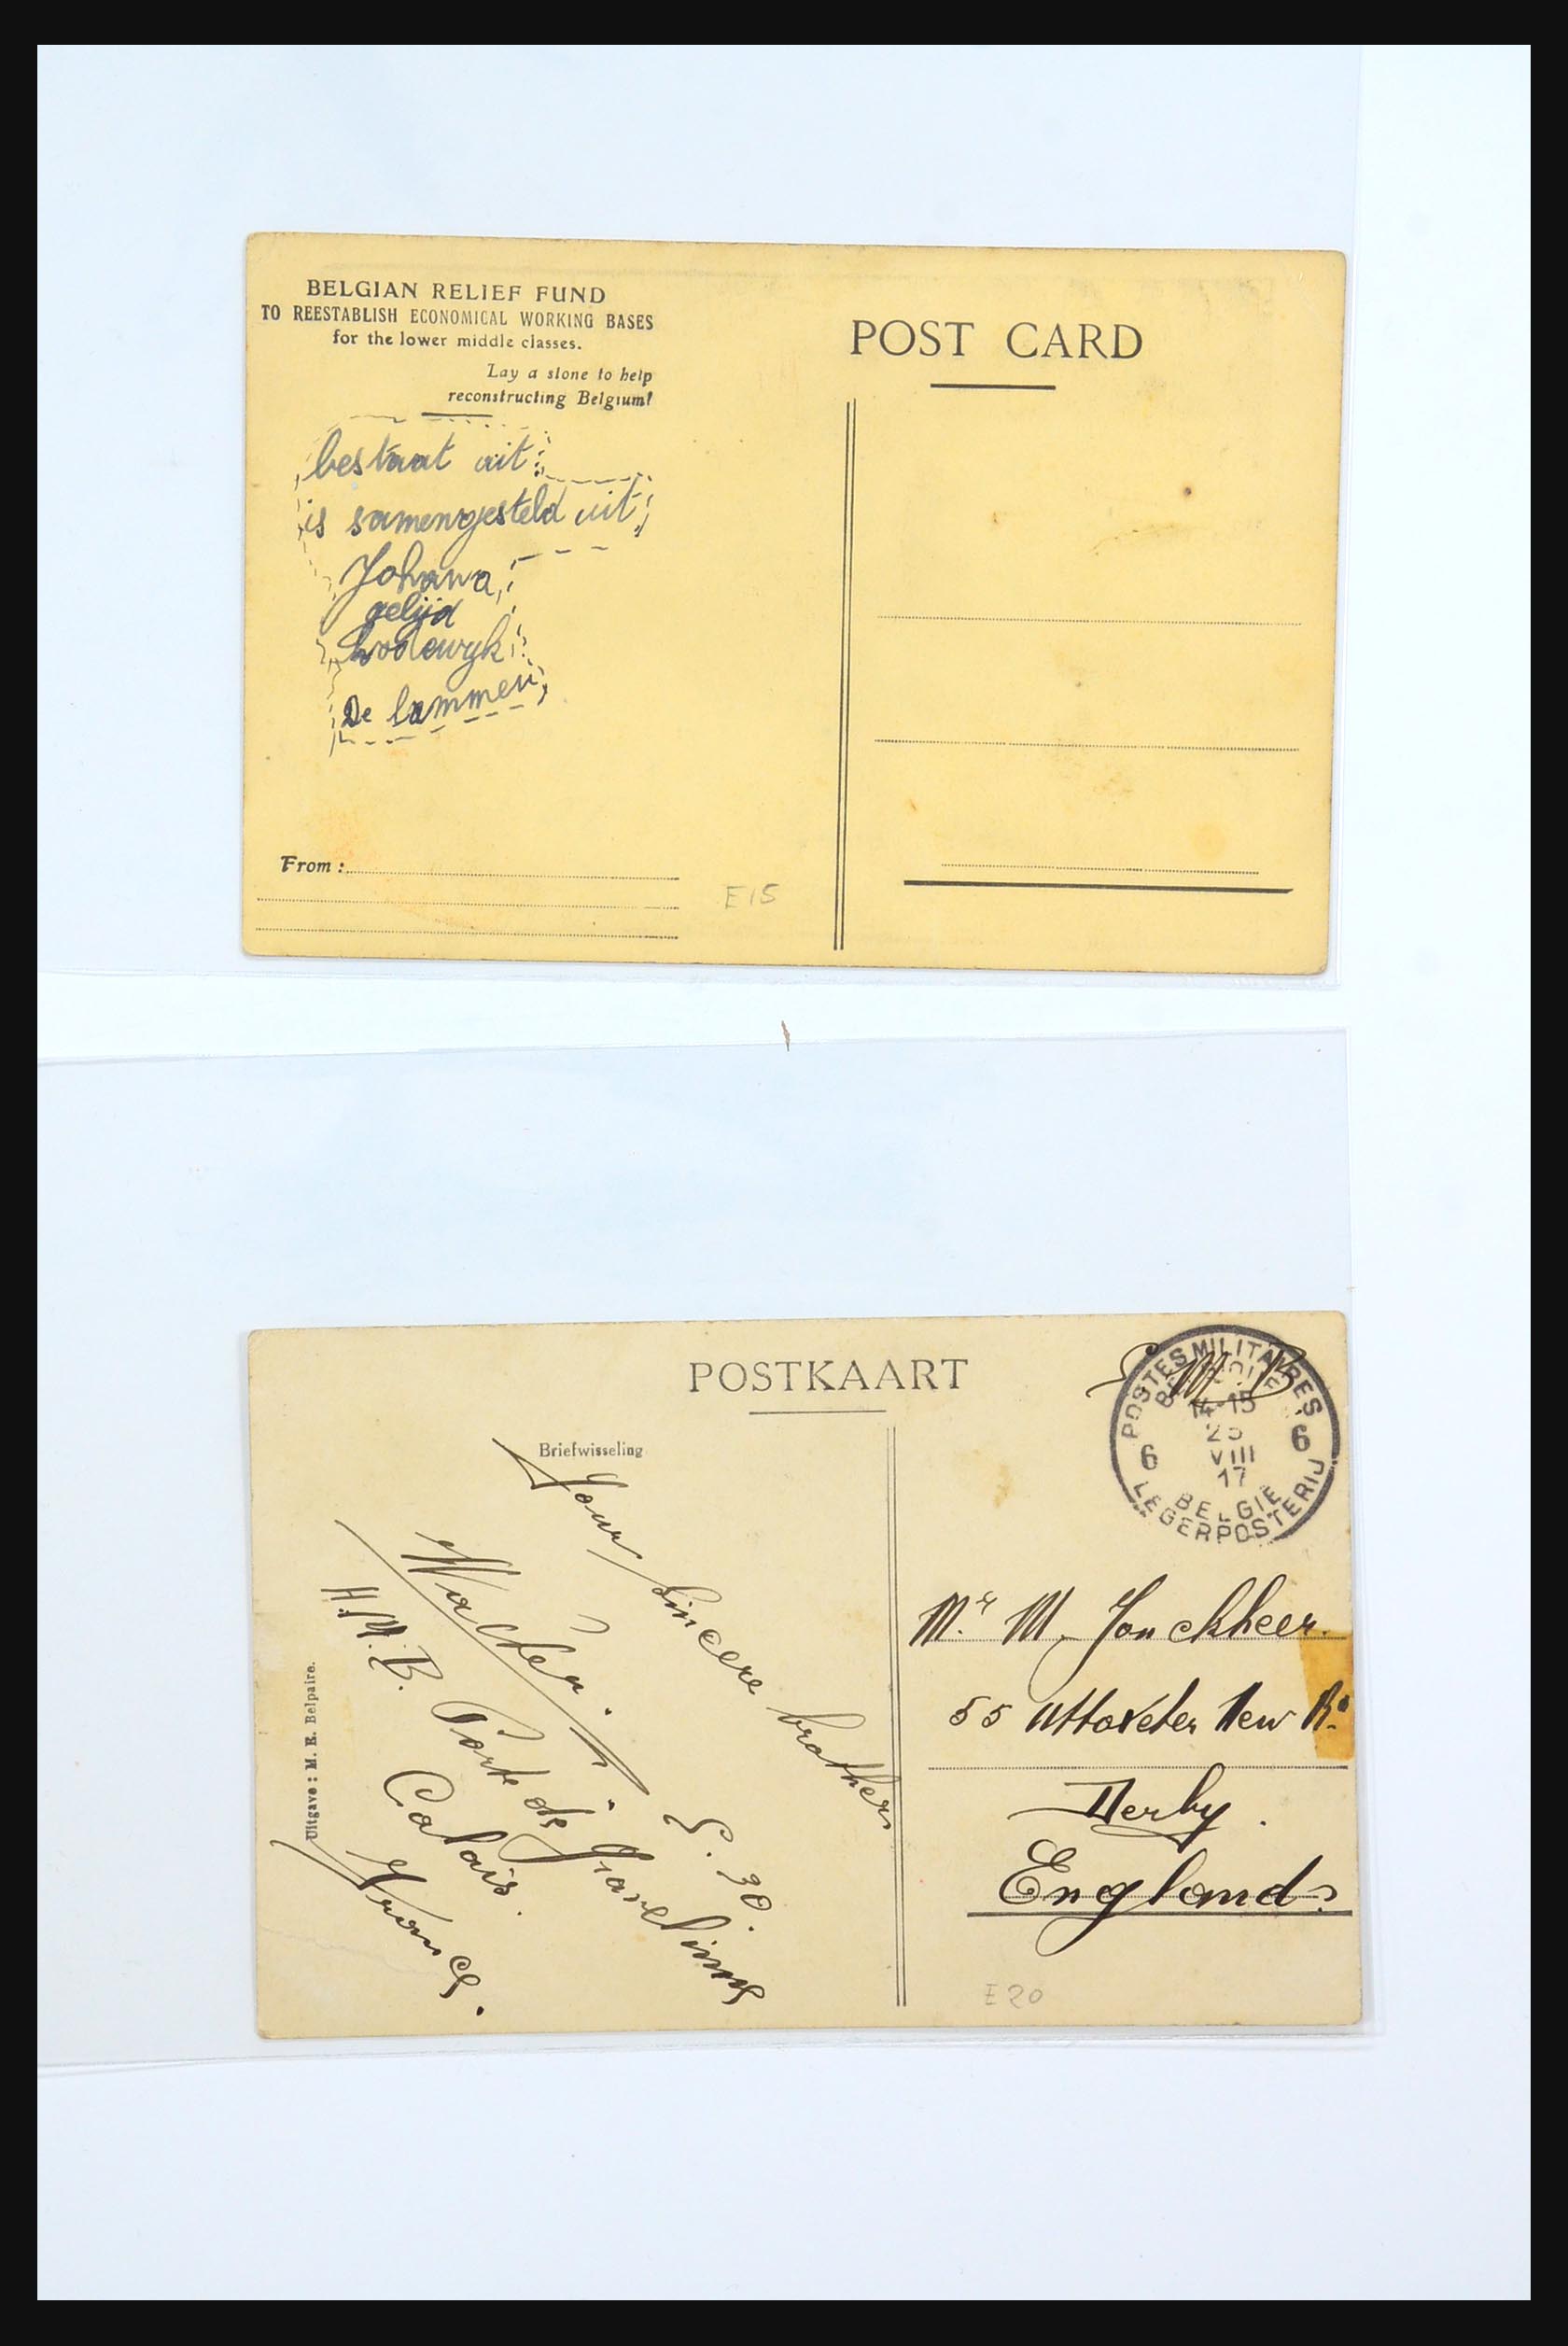 BELGIAN RELIEF FUND
TO REESTABLISH ECONOMICAL WORKING BASES
for the lower middle classes.
Lay a stone to help
reconstructing Belgium!
bestaat uit
is samengesteld uit
Johana
gelijd
Lodewyk
De lammen
From :
E15
POST CARD
POSTKAART
Briefwisseling
Your sincere brother
Walter.
H.M.B. Porte de Gravelines
Calais.
France.
S. 30.
Uitgave : M. E. Belpaire.
S.M.B
POSTES MILITAIRES
BELGIQUE
14-15
VIII
17
6 6
BELGIË
LEGERPOSTERIJ
Mr. M. Jonckheer.
55 Uttoxeter New Rd.
Derby.
England.
E20